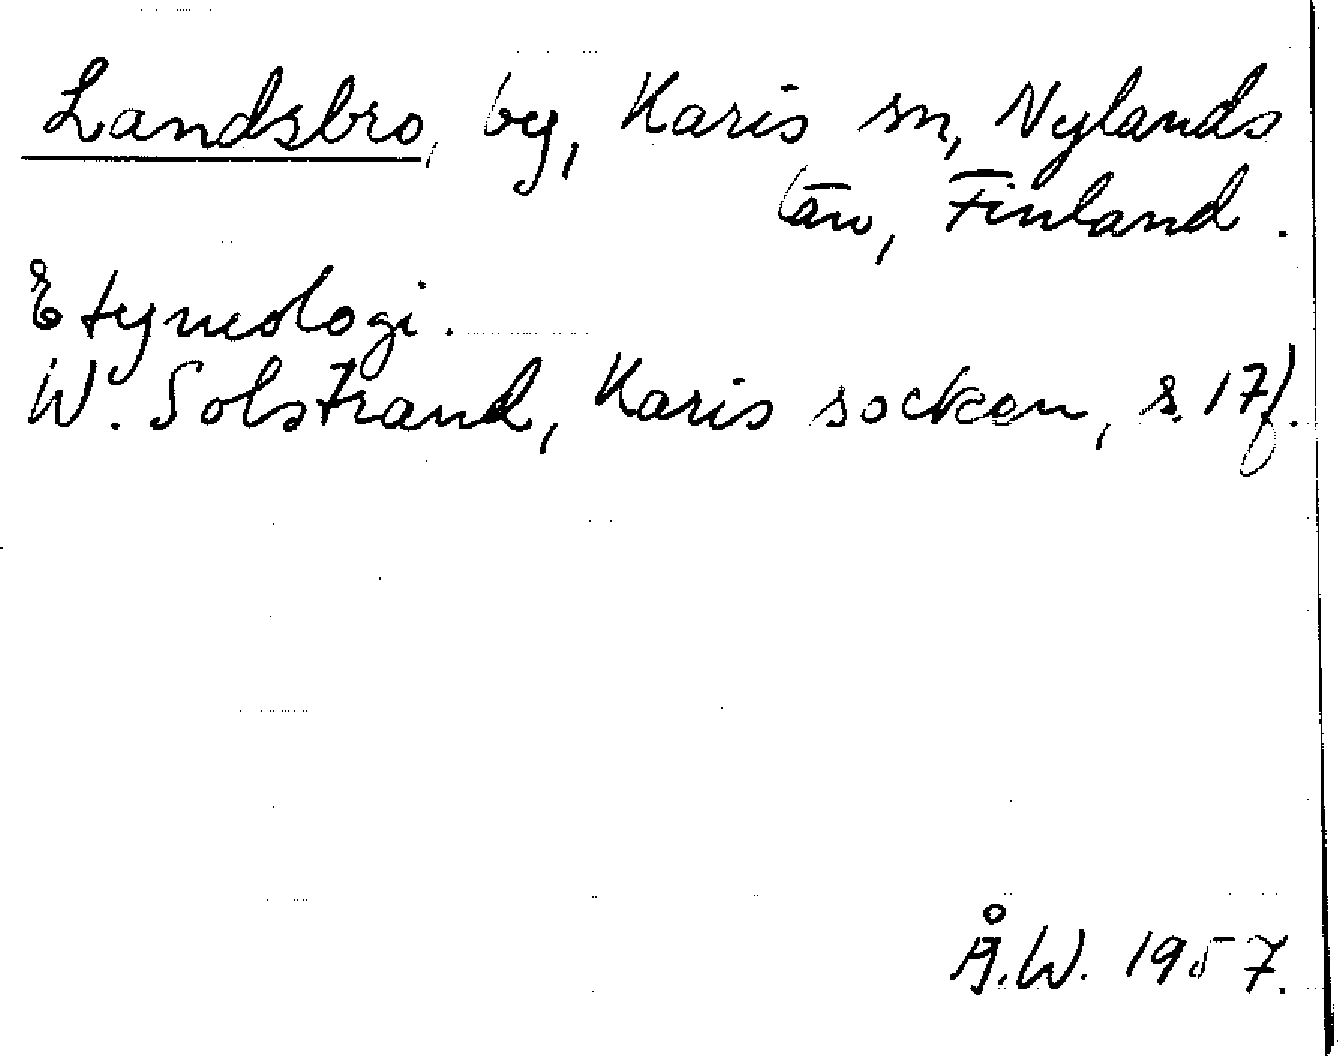 Landsbro, by, Karis sn, Nylands
län, Finland.
Etymologi.
W. Solstrand, Karis socken, s. 17f.
Å.W. 1957.